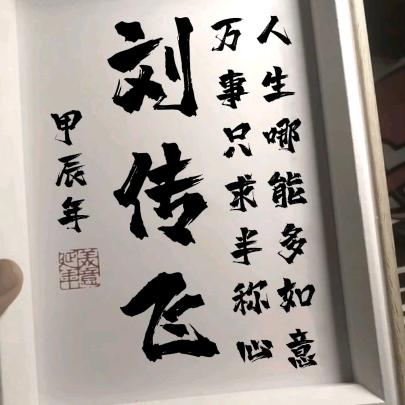 人生哪能多如意
万事只求半称心
刘传飞
甲辰年
美意延年